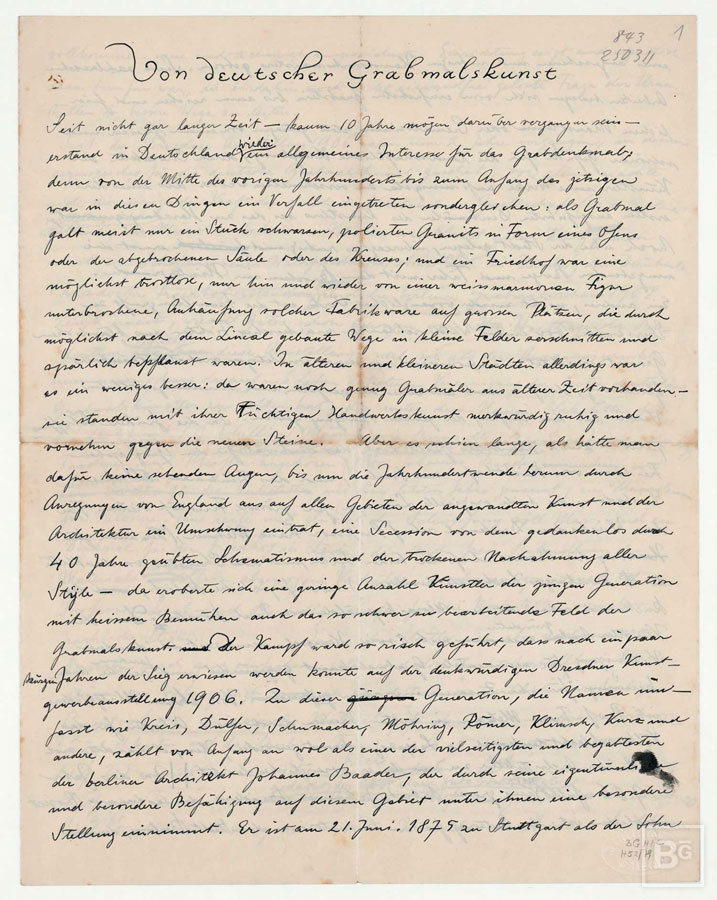 843
250311
1
Von deutscher Grabmalskunst
Seit nicht gar langer Zeit – kaum 10 Jahre mögen darüber vergangen sein –
wieder
erstand in Deutschland ein allgemeines Interesse für das Grabdenkmal;
denn von der Mitte des vorigen Jahrhunderts bis zum Anfang des jetzigen
war in diesen Dingen ein Verfall eingetreten sondergleichen: als Grabmal
galt meist nur ein Stück schwarzen, polierten Granits in Form eines Ofens
oder der abgebrochenen Säule oder des Kreuzes; und ein Friedhof war eine
möglichst trostlose, nur hin und wieder von einer weissmarmornen Figur
unterbrochene, Anhäufung solcher Fabrikware auf grossen Plätzen, die durch
möglichst nach dem Lineal gebaute Wege in kleine Felder zerschnitten und
spärlich bepflanzt waren. In älteren und kleineren Städten allerdings war
es ein weniges besser: da waren noch genug Grabmäler aus älterer Zeit vorhanden –
sie standen mit ihrer tüchtigen Handwerkskunst merkwürdig ruhig und
vornehm gegen die neuen Steine. Aber es schien lange, als hätte man
dafür keine sehenden Augen, bis um die Jahrhundertwende herum durch
Anregungen von England aus auf allen Gebieten der angewandten Kunst und der
Architektur ein Umschwung eintrat, eine Secession von dem gedankenlos durch
40 Jahre geübten Schematismus und der trockenen Nachahmung aller
Stÿle – da eroberte sich eine geringe Anzahl Künstler der jungen Generation
mit heissem Bemühen auch das so schwer zu bearbeitende Feld der
Grabmalskunst. und Der Kampf ward so risch geführt, dass nach ein paar
kurzen Jahren der Sieg erwiesen werden konnte auf der denkwürdigen Dresdner Kunst-
gewerbeausstellung 1906. Zu dieser jungen Generation, die Namen um-
fasst wie Kreis, Dülfer, Schumacher, Möhring, Römer, Klimsch, Kurz und
andere, zählt von Anfang an wol als einer der vielseitigsten und begabtesten
der berliner Architekt Johannes Baader, der durch seine eigentümliche
und besondere Befähigung auf diesem Gebiet unter ihnen eine besondere
Stellung einnimmt. Er ist am 21. Juni. 1875 zu Stuttgart als der Sohn
BG